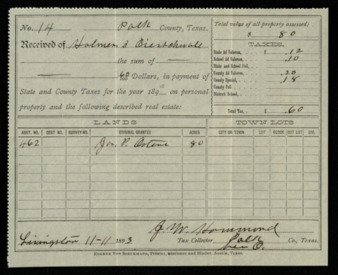 No. 14 Polk County, Texas.
Received of Holmes & Bierschwale
the sum of
Dollars, in payment of
State and County Taxes for the year 189 on personal
property and the following described real estate:
Total value of all property assessed:
$ 80
TAXES.
State Ad Valorem, $ .12
School Ad Valorem, .10
State and School Poll,
County Ad Valorem, .20
County Special, .18
County Poll
District School,
Total Tax, .60
LANDS TOWN LOTS
ABST. NO. CERT NO. SURVEY NO. ORIGINAL GRANTEE ACRES CITY OR TOWN LOT BLOCK DIV.
Jos. P. 80
J. W. Hammond
Livingston 11-11 1893 Tax Collector Polk Co., Texas.